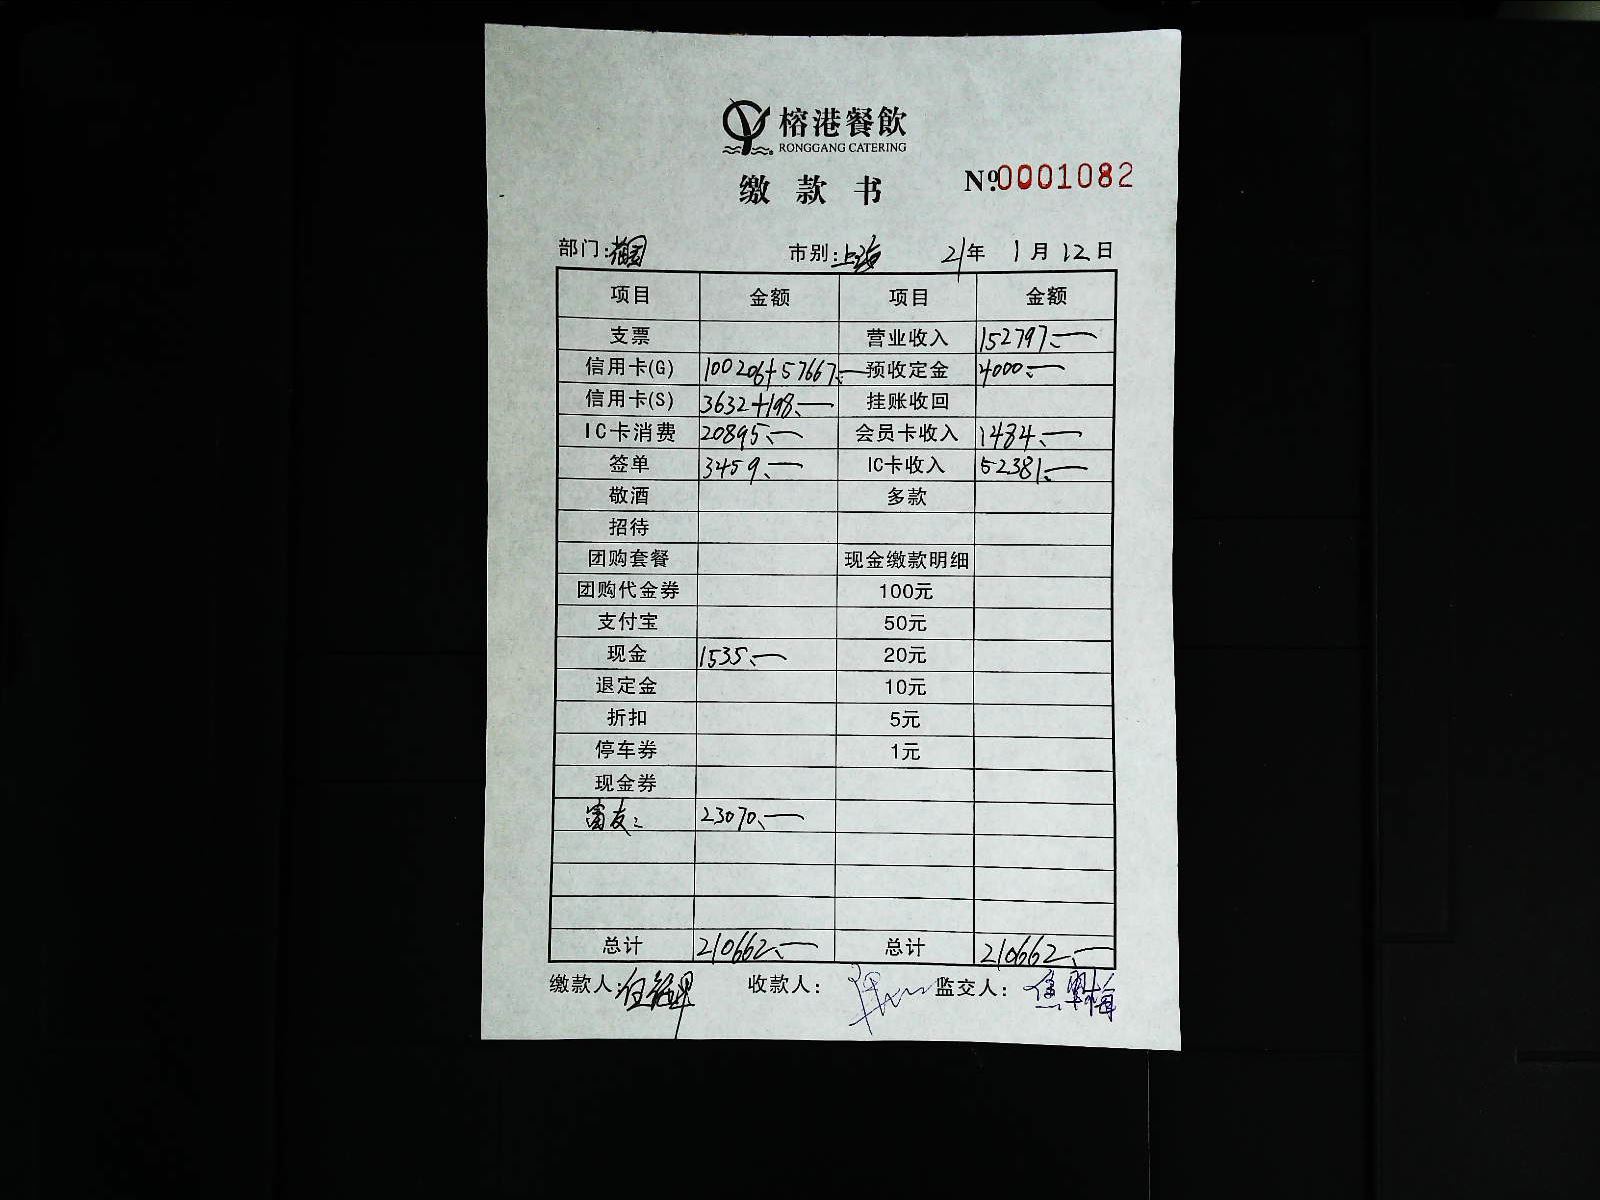 榕港餐飲
RONGGANG CATERING
缴款书
Nº 0001082
部门: 市别:上海 21年 1月12日
项目 金额 项目 金额
支票 营业收入 152797.一
信用卡(G) 100206+57667.一 预收定金 4000.一
信用卡(S) 3632+198.一 挂账收回
IC卡消费 20895.一 会员卡收入 1484.一
签单 3459.一 IC卡收入 52381.一
敬酒 多款
招待
团购套餐 现金缴款明细
团购代金券 100元
支付宝 50元
现金 1535.一 20元
退定金 10元
折扣 5元
停车券 1元
现金券
富友: 23070.一
总计 210662.一 总计 210662.一
缴款人: 收款人: 监交人: